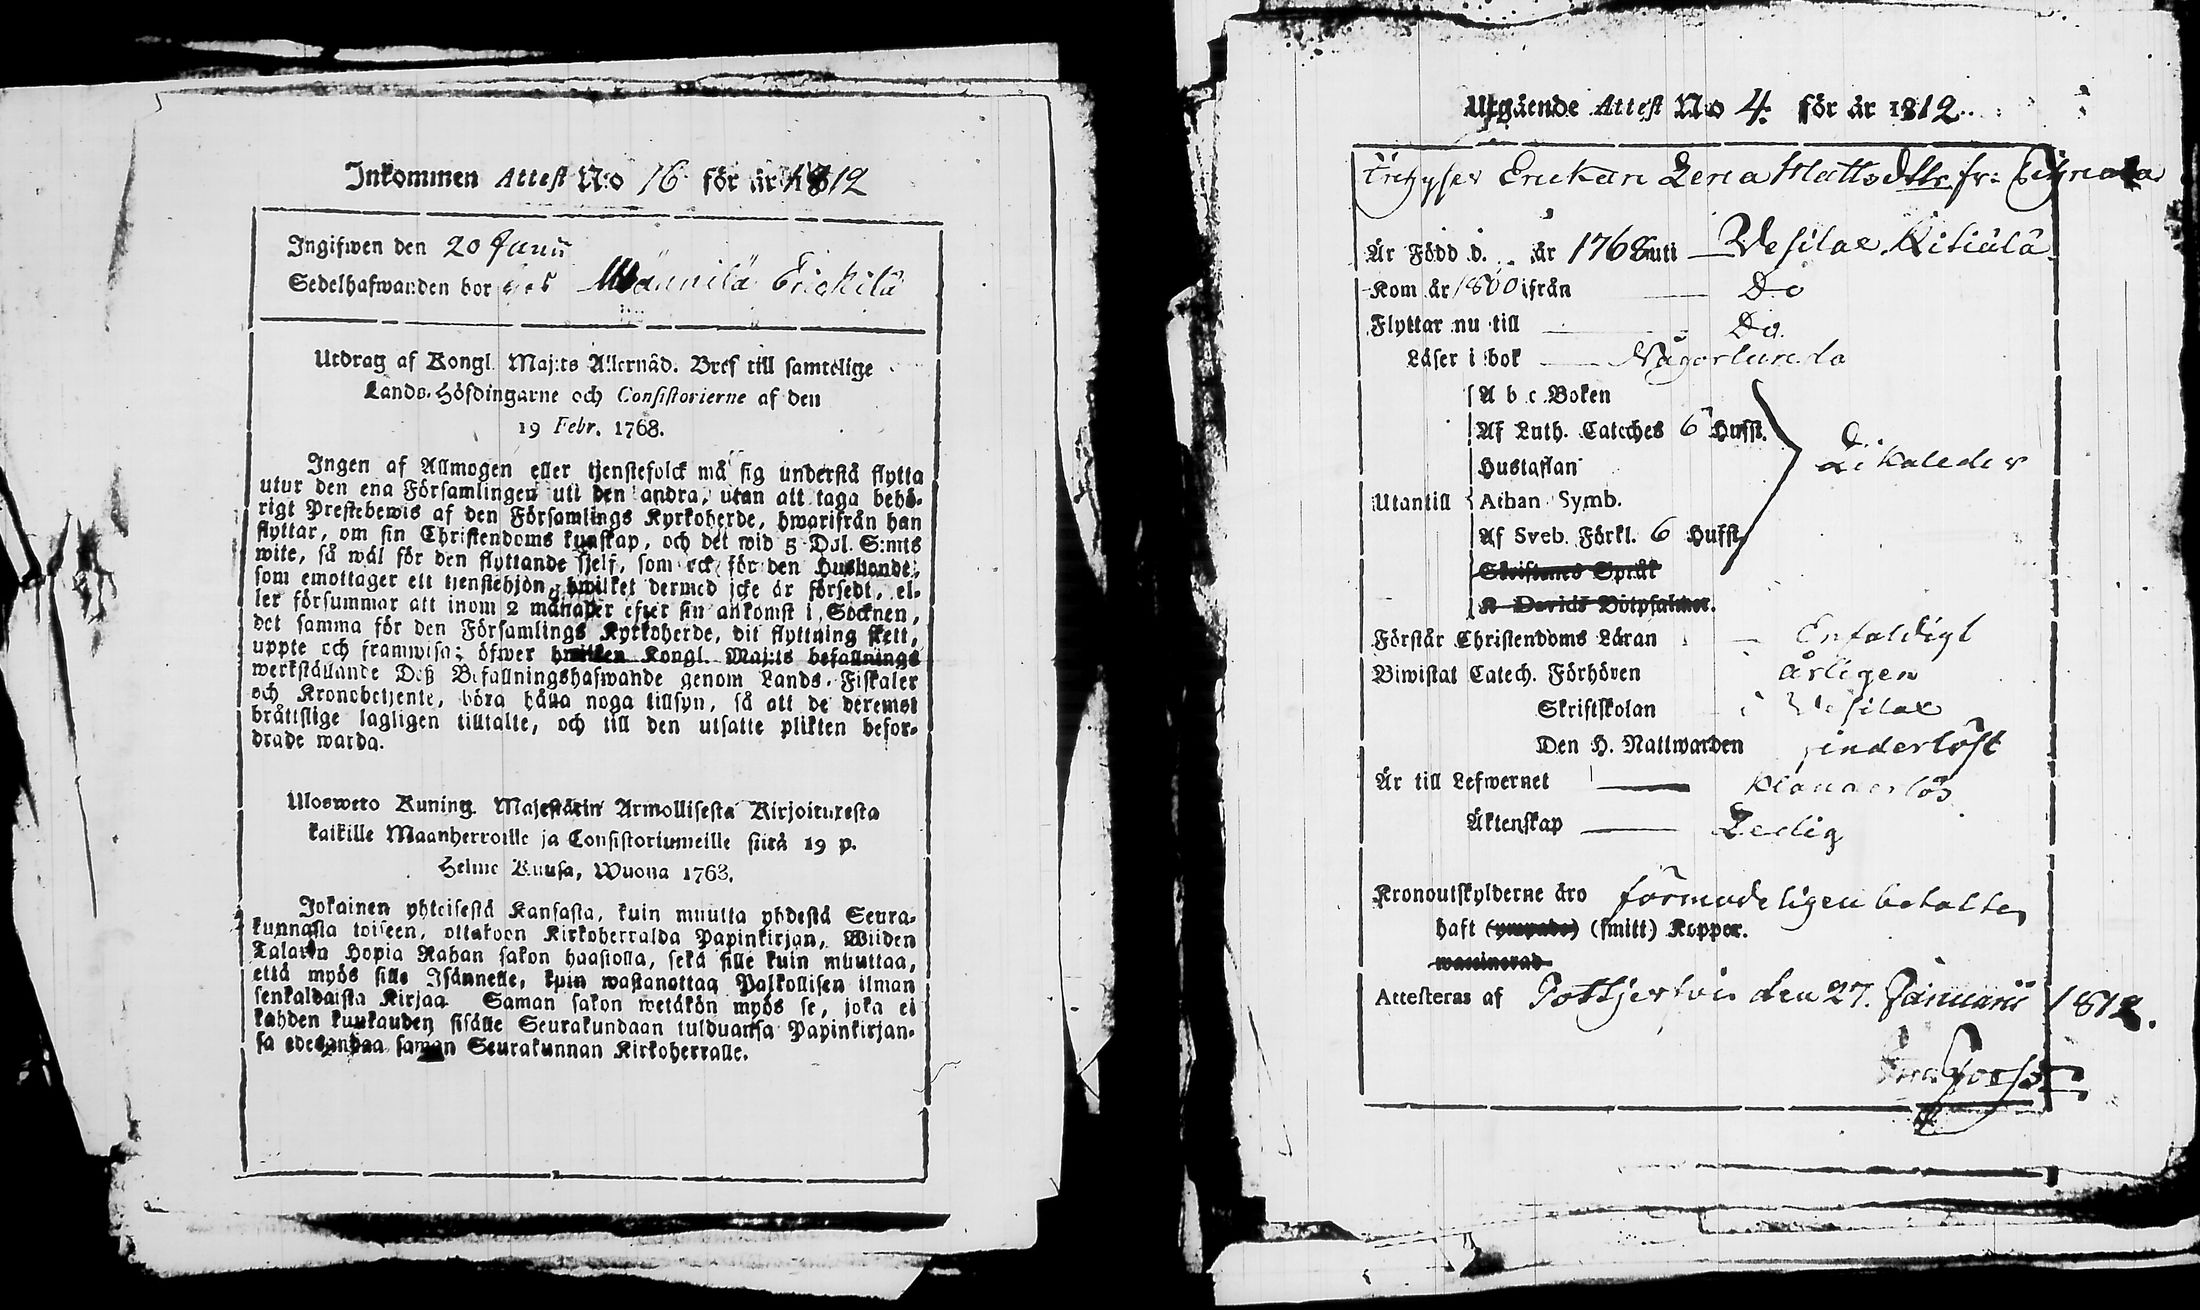 Inkommen Attest N:o 16 för år 1812
Ingifwen den 20 Junii
Sedelhafwanden bor hos Männilä Erickilä
Utdrag af Kongl. Maj:ts Allernåd. Bref till samtelige
Lands-Höfdingarne och Consistorierne af den
19 Febr. 1768.
Ingen af Allmogen eller tjenstefolck må sig understå flytta
utur den ena Församlingen uti den andra, utan att taga behö-
rigt Prestebewis af den Församlings Kyrkoherde, hwarifrån han
flyttar, om sin Christendoms kunskap, och det wid 5 Dal. S:mts
wite, så wäl för den flyttande sjelf, som ock för den Husbonde,
som emottager ett tjenstehjon, hwilket dermed icke är försedt, el-
ler försummar att inom 2 månader efter sin ankomst i Socknen,
det samma för den Församlings Kyrkoherde, dit flyttning skett,
uppte och framwisa; öfwer hwilken Kongl. Maj:ts befallnings
werkställande Deß Befallningshafwande genom Lands-Fiskaler
och Kronobetjente, böra hålla noga tillsyn, så att de deremot
bråttslige lagligen tilltalte, och till den utsatte plikten befor-
drade warda.
Ulosweto Kuning. Majestätin Armollisesta Kirjoituxesta
kaikille Maanherroille ja Consistoriumeille siitä 19 p.
Helme Kuusa, Wuona 1768.
Jokainen yhteisestä Kansasta, kuin muutta yhdestä Seura-
kunnasta toiseen, ottakoon Kirkoherralda Papinkirjan, Wiiden
Talarin Hopia Rahan sakon haastolla, sekä sille kuin muuttaa,
että myös sille Isännelle, kuin wastanottaa Palkollisen ilman
senkaldaista Kirjaa. Saman sakon wetäkön myös se, joka ei
kahden kuukauden sisälle Seurakundaan tulduansa Papinkirjan-
sa edesandaa saman Seurakunnan Kirkoherralle.
Utgående Attest No 4. för år 1812.
Enckan Lena Mattsdttr fr:
Är Född d. år 1768 uti Wesilax Kitiälä
Kom år 1800 ifrån Do
Flyttar nu till Do.
Läser i bok Någorlunda
A b c Boken
Af Luth. Cateches 6 Hufst.
Hustaflan
Likaledes
Utantill Athan Symb.
Af Sveb. Förkl. 6 Hufst.
Skriftenes Språk
K Davids Botpsalmer.
Förstår Christendoms Läran Enfaldigt
Biwistat Catech. Förhören årligen
Skriftskolan i Wesilax
Den H. Nattwarden
Är till Lefwernet klanderlös
Äktenskap Ledig
Kronoutskylderne äro förmodeligen betalte
haft (ympade) (smitt) Koppor.
waccinerad
Attesteras af den 27. Januarii 1812.